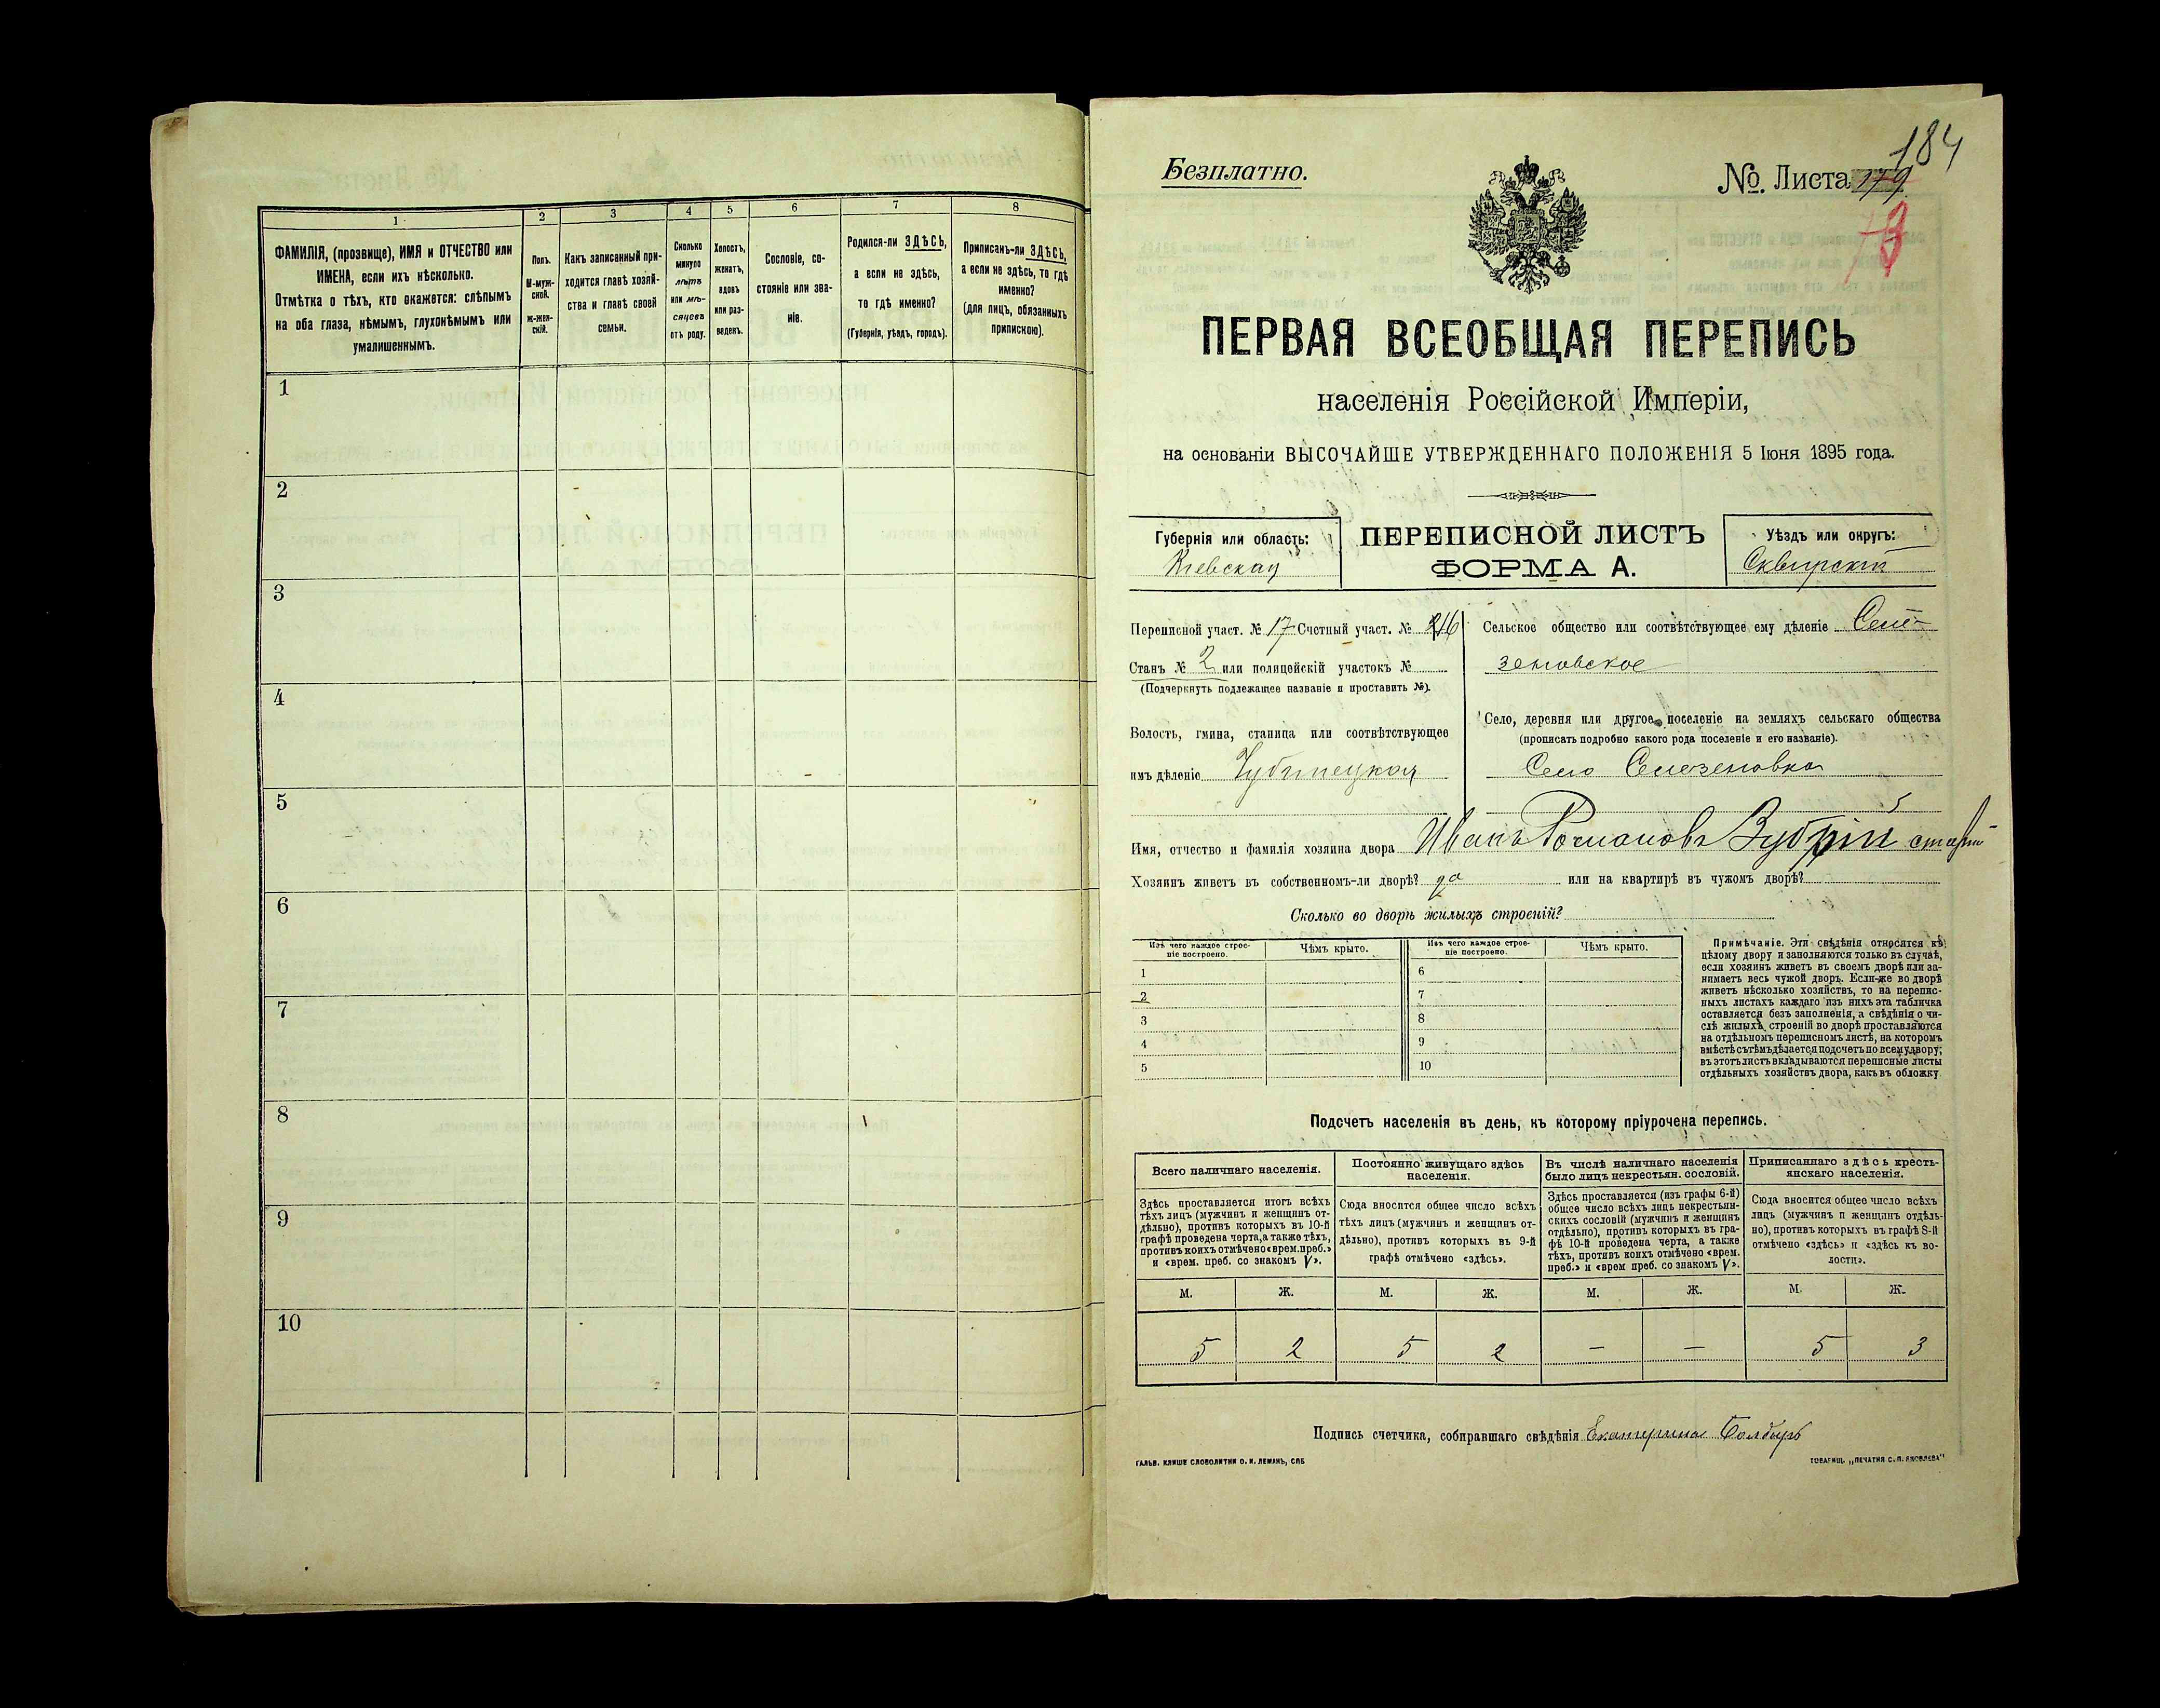 1
2
3
4
5
6
7
8
ФАМИЛІЯ, (прозвище), ИМЯ и ОТЧЕСТВО или
ИМЕНА, если ихъ нѣсколько.
Отмѣтка о тѣхъ, кто окажется: слѣпымъ
на оба глаза, нѣмымъ, глухонѣмымъ или
умалишеннымъ.
Полъ.
М-муж-
ской.
ж-жен-
скій.
Какъ записанный при-
ходится главѣ хозяй-
ства и главѣ своей
семьи.
Сколько
минуло
лѣтъ
или мѣ-
сяцевъ
отъ роду.
Холостъ,
женатъ,
вдовъ
или раз-
веденъ.
Сословіе, со-
стояніе или зва-
ніе.
Родился-ли ЗДѢСЬ,
а если не здѣсь,
то гдѣ именно?
(Губернія, уѣздъ, городъ).
Приписанъ-ли ЗДѢСЬ,
а если не здѣсь, то гдѣ
именно?
(для лицъ, обязанныхъ
припискою).
1
2
3
4
5
6
7
8
9
10
Безплатно.
184
№. Листа 179
ПЕРВАЯ ВСЕОБЩАЯ ПЕРЕПИСЬ
населенія Россійской Имперіи,
на основаніи ВЫСОЧАЙШЕ УТВЕРЖДЕННАГО ПОЛОЖЕНІЯ 5 Іюня 1895 года.
Губернія или область:
Кіевская
ПЕРЕПИСНОЙ ЛИСТЪ
ФОРМА А.
Уѣздъ или округъ:
Сквирскій
Переписной участ. № 17 Счетный участ. № 216
Станъ № 2 или полицейскій участокъ №
(Подчеркнуть подлежащее названіе и проставить №).
Волость, гмина, станица или соотвѣтствующее
имъ дѣленіе Чубинецкая
Сельское общество или соотвѣтствующее ему дѣленіе Селе-
зеновское
Село, деревня или другое поселеніе на земляхъ сельскаго общества
(прописать подробно какого рода поселеніе и его названіе).
Село Селезеновка
Имя, отчество и фамилія хозяина двора Иванъ Романовъ Зубрій старш
Хозяинъ живетъ въ собственномъ-ли дворѣ? да или на квартирѣ въ чужомъ дворѣ?
Сколько во дворѣ жилыхъ строеній?
Изъ чего каждое строе-
ніе построено.
Чѣмъ крыто.
Изъ чего каждое строе-
ніе построено.
Чѣмъ крыто.
1
2
3
4
5
6
7
8
9
10
Примѣчаніе. Эти свѣдѣнія относятся къ
цѣлому двору и заполняются только въ случаѣ,
если хозяинъ живетъ въ своемъ дворѣ или за-
нимаетъ весь чужой дворъ. Если-же во дворѣ
живетъ нѣсколько хозяйствъ, то на перепис-
ныхъ листахъ каждаго изъ нихъ эта табличка
оставляется безъ заполненія, а свѣдѣнія о чи-
слѣ жилыхъ строеній во дворѣ проставляются
на отдѣльномъ переписномъ листѣ, на которомъ
вмѣстѣ съ тѣмъ дѣлается подсчетъ по всему двору;
въ этотъ листъ вкладываются переписные листы
отдѣльныхъ хозяйствъ двора, какъ въ обложку.
Подсчетъ населенія въ день, къ которому пріурочена перепись.
Всего наличнаго населенія.
Здѣсь проставляется итогъ всѣхъ
тѣхъ лицъ (мужчинъ и женщинъ от-
дѣльно), противъ которыхъ въ 10-й
графѣ проведена черта, а также тѣхъ,
противъ коихъ отмѣчено «врем. преб.»
и «врем. преб. со знакомъ V».
Постоянно живущаго здѣсь
населенія.
Сюда вносится общее число всѣхъ
тѣхъ лицъ (мужчинъ и женщинъ от-
дѣльно), противъ которыхъ въ 9-й
графѣ отмѣчено «здѣсь».
Въ числѣ наличнаго населенія
было лицъ некрестьян. сословій.
Здѣсь проставляется (изъ графы 6-й)
общее число всѣхъ лицъ некрестьян-
скихъ сословій (мужчинъ и женщинъ
отдѣльно), противъ которыхъ въ гра-
фѣ 10-й проведена черта, а также
тѣхъ, противъ коихъ отмѣчено «врем.
преб.» и «врем преб. со знакомъ V».
Приписаннаго здѣсь кресть-
янскаго населенія.
Сюда вносится общее число всѣхъ
лицъ (мужчинъ и женщинъ отдѣль-
но), противъ которыхъ въ графѣ 8-й
отмѣчено «здѣсь» и «здѣсь къ во-
лости».
М. Ж. М. Ж. М. Ж. М. Ж.
5 2 5 2 — — 5 3
Подпись счетчика, собиравшаго свѣдѣнія Екатерина Болдырь
ГАЛЬВ. КЛИШЕ СЛОВОЛИТНИ О. И. ЛЕМАНЪ, СПБ
ТОВАРИЩ. „ПЕЧАТНЯ С. П. ЯКОВЛЕВА"